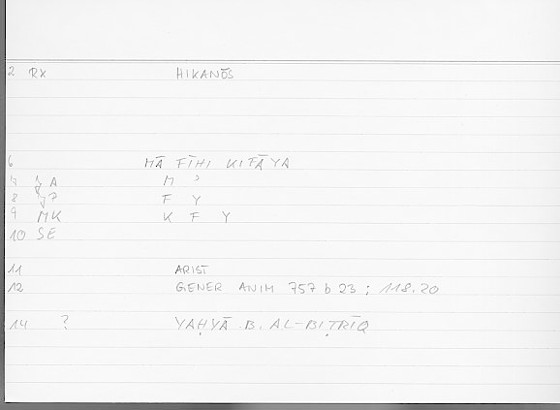 2 RX HIKANŌS
6 MĀ FĪHI KIFĀYA
7 A M ʾ
8 F Y
9 MK K F Y
10 SE
11 ARIST
12 GENER ANIM 757 b 23 ; 118.20
14 ? YAḤYĀ B. AL-BIṬRĪQ